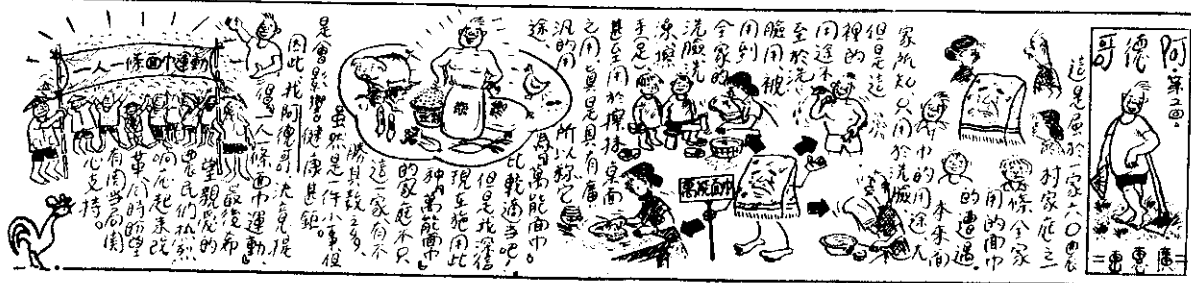 阿德哥
第二回
惠廣
這是屬於一家六口農
村家庭之一
條全家
用的面巾
的遭遇。
本來面
巾的用途，大
家所知，只用於洗臉，
但是這一家
裡的
用途不
至於洗
臉，用被
用到
全家的
洗臉洗
澡擦
手足，
甚至用於擦抹桌面
之用，真是具有廣
汎的用
途，所以稱它
為「萬能面巾」
比較適當吧！
但是我深信
現在施用此
種「萬能面巾」
的家庭不只
這一家，有不
勝其數之多，
雖然是一件小事，但
是會影響健康甚鉅。
因此，我阿德哥決意提
倡「一人一條面巾運動」
最後希
望親愛的
農民們熱烈
响應起來，改
革。同時盼望
有關當局關
心支持。
萬能面巾
一人一條面巾運動